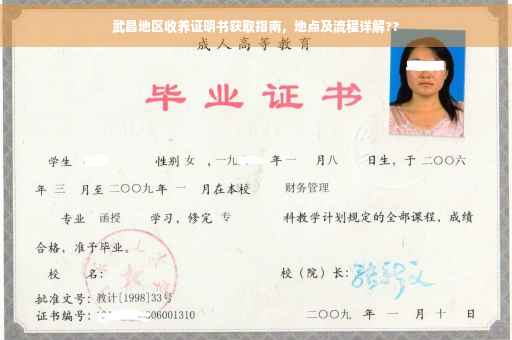 武昌地区收养证明书获取指南，地点及流程详解??
成人高等教育
毕业证书
学生 性别 女 ，一九 年 一 月 八 日生，于 二〇〇六
年 三 月至 二〇〇九 年 一 月在本校 财务管理
专业 函授 学习，修完 专 科教学计划规定的全部课程，成绩
合格，准予毕业。
校 名： 校（院）长：
批准文号：教计[1998]33号
证书编号： 06001310 二〇〇九 年 一 月 十 日